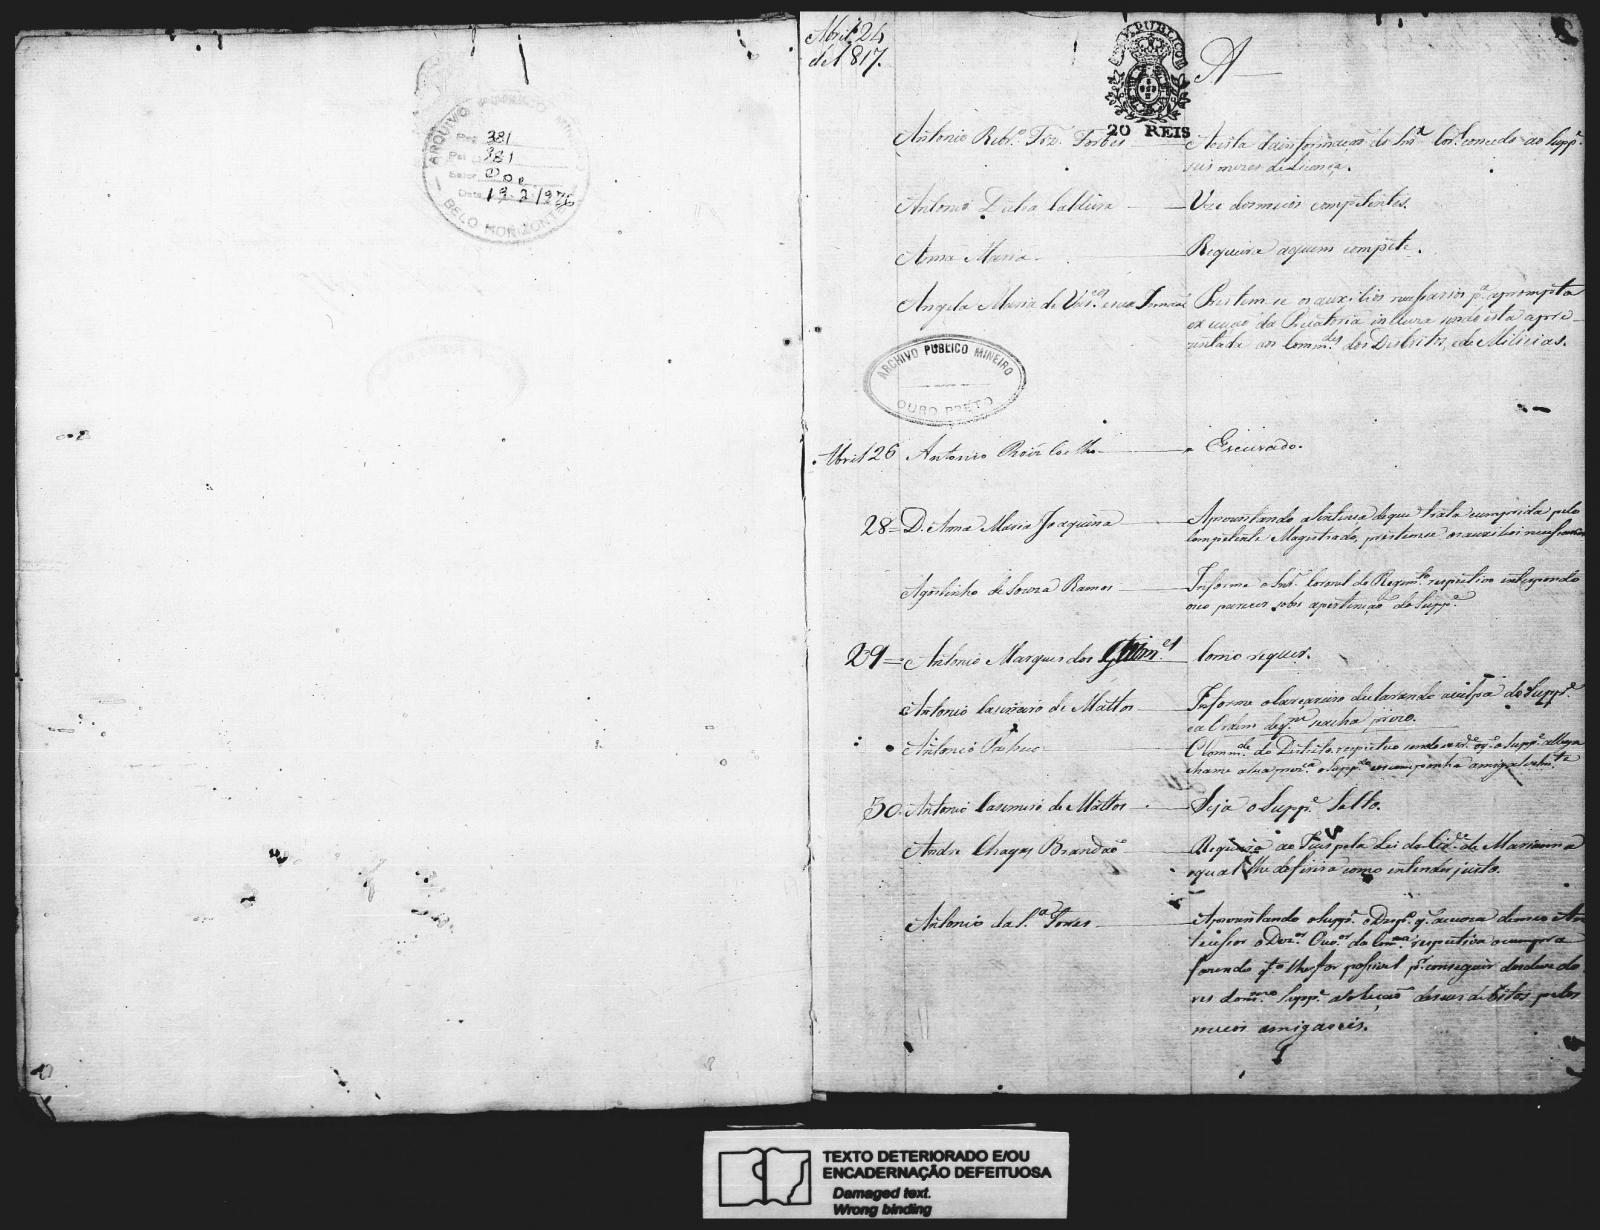 ARQUIVO PUBLICO MINEIRO
Pag 381
Pol 381
Setor Doc
Data 19.2.1976
BELO HORIZONTE
Abril 24
de 1817.
A
20 REIS
Antonio Forbes — Avista da informaçaõ do Snr. Cor.el concedo ao Supp.e
seis mezes de licença.
Antonio Caldeira — Uze dos meios competentes.
Anna Maria — Requeira aquem compete.
Angela Maria de Vas.cos e sua Irmaã Prestem-se os auxilios necessarios p.a aprompta
execuçaõ da Precatoria incluza sendo esta apre-
zentada aos Comm.des dos Destritos, e de Milicias.
ARCHIVO PUBLICO MINEIRO
OURO PRETO
Abril 26 Antonio Roiz Coelho — Escuzado.
28 = D. Anna Maria Joaquina — Aprezentando a Sentença de que trata cumprida pelo
competente Magistrado, prestemse os auxilios necessarios
Agostinho de Souza Ramos — Informe o Snr. Coronel do Regim.to respectivo interpondo
o seo parecer sobre apertençaõ do Supp.e
29 = Antonio Marques dos — Como requer.
Antonio Casimiro de Mattos — Informe o Carcereiro declarando aculpa do Supp.e
ea Ordem deq.m seacha prezo.
Antonio Pacheco — O Comm.de do Districto respectivo sendo verd.e oq. o Supp.e allega
chame asua prez.ca o Supp.do ecomponha amigavelm.te
30. Antonio Casimiro de Mattos — Seja o Supp.e Solto.
Andre Chagas Brandaõ — Requeira ao Juis pela Lei da Cid.e de Marianna
oqual lhe defirira como intender justo.
Antonio da S.a Torres — Aprezentando o Supp.e o Desp.o q. acuza demeo An-
tecessor o Dez.or Ouv.or da Com.ca respectiva o cumpra
fazendo q.to lhe for possivel p.a conseguir dos devedo-
res do m.mo Supp.e asoluçaõ deseus debitos pelos
meios amigaveis.
TEXTO DETERIORADO E/OU
ENCADERNAÇÃO DEFEITUOSA
Damaged text.
Wrong binding